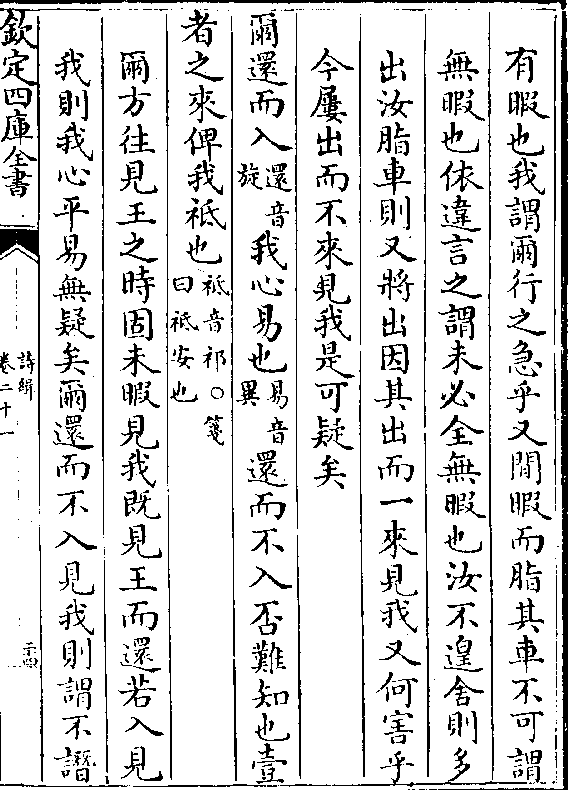 有暇也我謂爾行之急乎又閒暇而脂其車不可謂
無暇也依違言之謂未必全無暇也汝不遑舍則多
出汝脂車則又將出因其出而一來見我又何害乎
今屢出而不來見我是可疑矣
爾還而入還音旋我心易也易音異還而不入否難知也壹
者之來俾我祗也祗音祁○箋曰祗安也
爾方往見王之時固未暇見我既見王而還若入見
我則我心平易無疑矣爾還而不入見我則謂不譖
欽定四庫全書
詩緝
卷二十一